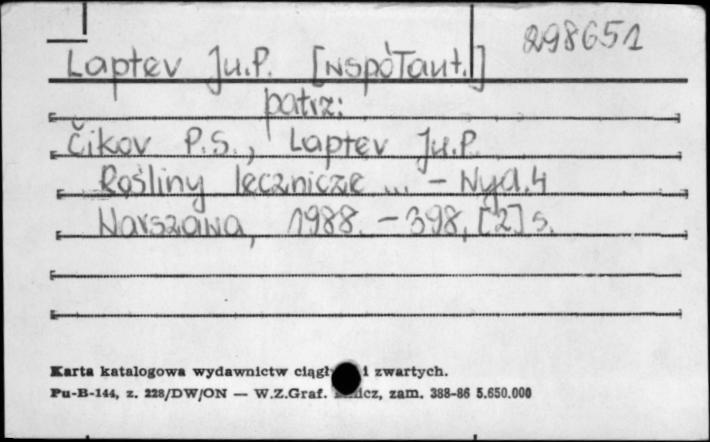 298651
Laptev Ju.P. [współaut.]
patrz:
Čikov P.S., Laptev Ju.P.
Rośliny lecznicze ... - Wyd. 4
Warszawa, 1988. - 398, [2] s.
Karta katalogowa wydawnictw ciągł i zwartych.
Pu-B-144, z. 228/DW/ON — W.Z.Graf. zam. 388-86 5.650.000